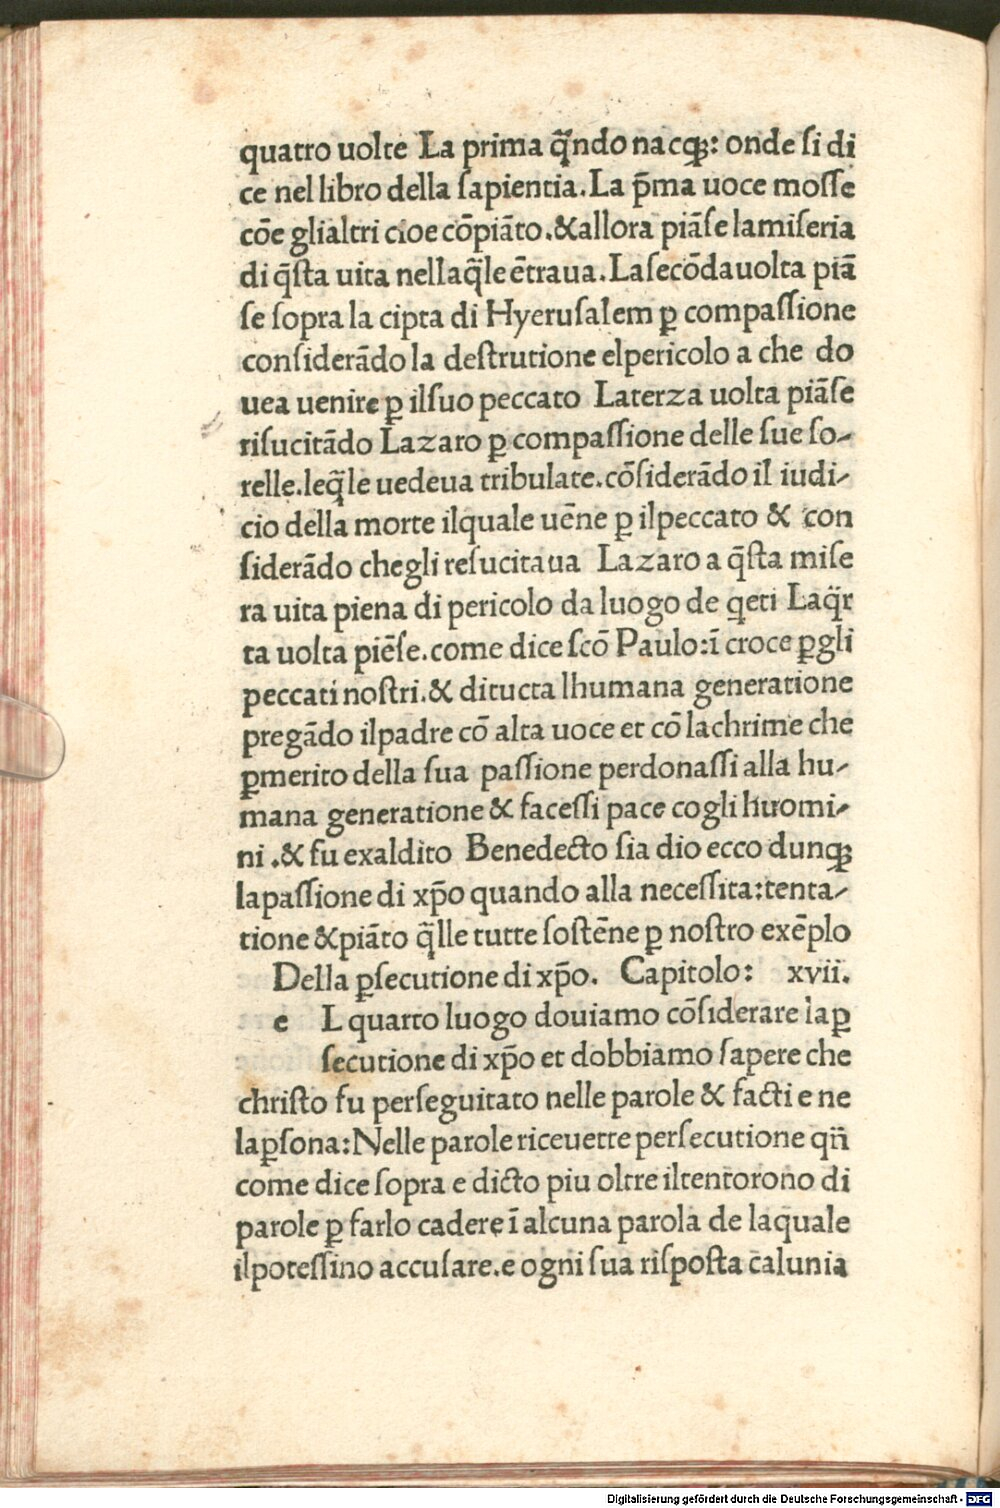 quatro uolte La prima q̃ndo nacq̃: onde ſi di
ce nel libro della ſapientia. La p̃ma uoce moſſe
cõe glialtri cioe cõpiãto. &allora piãſe lamiſeria
di q̃ſta uita nellaq̃le ẽtraua. Laſecõdauolta piã
ſe ſopra la cipta di Hyeruſalem ꝑ compaſſione
conſiderãdo la deſtrutione elpericolo a che do
uea uenire ꝑ ilſuo peccato Laterza uolta piãſe
riſucitãdo Lazaro ꝑ compaſſione delle ſue ſo-
relle. leq̃le uedeua tribulate. cõſiderãdo il iudi-
cio della morte ilquale uẽne ꝑ ilpeccato & con
ſiderãdo chegli reſucitaua Lazaro a q̃ſta miſe
ra uita piena di pericolo da luogo de q̣eti Laq̃r
ta uolta piẽſe. come dice ſcõ Paulo: ĩ croce ꝑgli
peccati noſtri. & ditucta lhumana generatione
pregãdo ilpadre cõ alta uoce et cõ lachrime che
ꝑmerito della ſua paſſione perdonaſſi alla hu-
mana generatione & faceſſi pace cogli huomi-
ni .& fu exaldito Benedecto ſia dio ecco dunq̃
lapaſſione di xp̃o quando alla neceſſita: tenta-
tione &piãto q̃lle tutte ſoſtẽne ꝑ noſtro exẽplo
Della ꝑſecutione di xp̃o. Capitolo: xvii.
e L quarto luogo douiamo cõſiderare laꝑ
ſecutione di xp̃o et dobbiamo ſapere che
chriſto fu perſeguitato nelle parole & facti e ne
laꝑſona: Nelle parole riceuette perſecutione qñ
come dice ſopra e dicto piu oltre iltentorono di
parole ꝑ farlo cadere ĩ alcuna parola de laquale
ilpoteſſino accuſare. e ogni ſua riſpoſta calunia
Digitalisierung gefördert durch die Deutsche Forschungsgemeinschaft - DFG